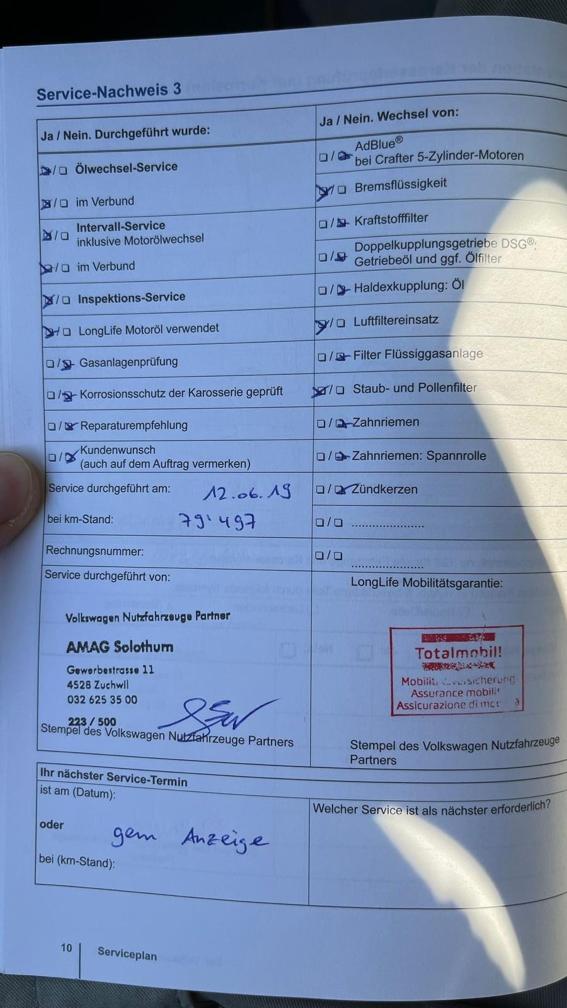 Service-Nachweis 3
Ja / Nein. Durchgeführt wurde:
☒/☐ Ölwechsel-Service
☒/☐ im Verbund
☒/☐ Intervall-Service
inklusive Motorölwechsel
☒/☐ im Verbund
☒/☐ Inspektions-Service
☒/☐ LongLife Motoröl verwendet
☐/☒ Gasanlagenprüfung
☐/☒ Korrosionsschutz der Karosserie geprüft
☐/☒ Reparaturempfehlung
☐/☒ Kundenwunsch
(auch auf dem Auftrag vermerken)
Service durchgeführt am: 12.06.19
bei km-Stand: 79'497
Rechnungsnummer:
Service durchgeführt von:
Volkswagen Nutzfahrzeuge Partner
AMAG Solothurn
Gewerbestrasse 11
4528 Zuchwil
032 625 35 00
223 / 500
Stempel des Volkswagen Nutzfahrzeuge Partners
Ja / Nein. Wechsel von:
☐/☒ AdBlue®
bei Crafter 5-Zylinder-Motoren
☒/☐ Bremsflüssigkeit
☐/☒ Kraftstofffilter
☐/☒ Doppelkupplungsgetriebe DSG®:
Getriebeöl und ggf. Ölfilter
☐/☒ Haldexkupplung: Öl
☒/☐ Luftfiltereinsatz
☐/☒ Filter Flüssiggasanlage
☒/☐ Staub- und Pollenfilter
☐/☒ Zahnriemen
☐/☒ Zahnriemen: Spannrolle
☐/☒ Zündkerzen
☐/☐ ......................
☐/☐ ......................
LongLife Mobilitätsgarantie:
Totalmobil!
Assurance mobili
Assicurazione di
Stempel des Volkswagen Nutzfahrzeuge
Partners
Ihr nächster Service-Termin
ist am (Datum):
oder
gem Anzeige
bei (km-Stand):
Welcher Service ist als nächster erforderlich?
10 Serviceplan